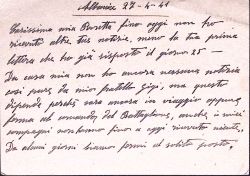 Albonice 27-4-41
Carissima mia Rosetta fino oggi non ho
ricevuto altre tue notizie, meno la tua prima
lettera che ho già risposto il giorno 25 —
Da casa mia non ho ancora nessuna notizia
così pure da mio fratello Gigi, ma questo
dipende perchè sarà ancora in viaggio oppure
fermo al comando del Battaglione, anche i miei
compagni non hanno fino a oggi ricevuto niente.
Da alcuni giorni siamo fermi al solito posto,